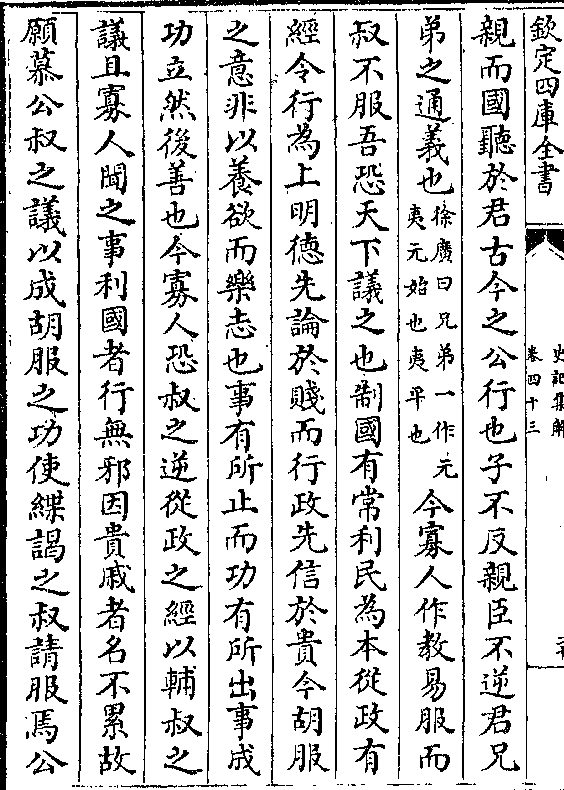 欽定四庫全書
史記集解
卷四十三
親而國聽於君古今之公行也子不反親臣不逆君兄
弟之通義也徐廣曰兄弟一作元夷元始也夷平也今寡人作教易服而
叔不服吾恐天下議之也制國有常利民為本從政有
經令行為上明德先論於賤而行政先信於貴今胡服
之意非以養欲而樂志也事有所止而功有所出事成
功立然後善也今寡人恐叔之逆從政之經以輔叔之
議且寡人聞之事利國者行無邪因貴戚者名不累故
願慕公叔之議以成胡服之功使緤謁之叔請服焉公